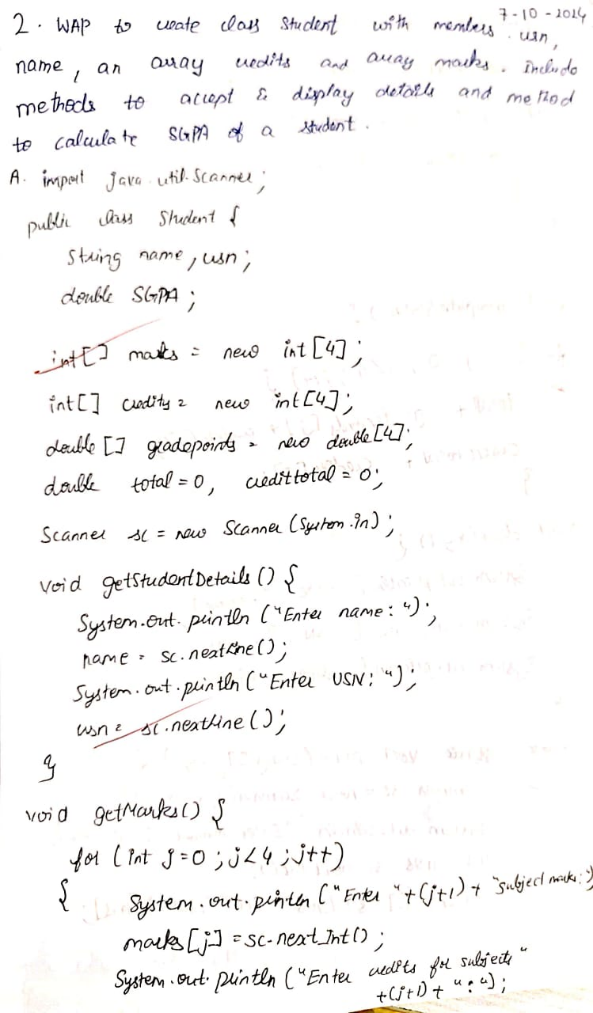 7-10-2024
2. WAP to create class Student with members usn,
name, an array credits and array marks. Include
methods to accept & display details and method
to calculate SGPA of a student.
A. import java.util.Scanner;
public class Student {
String name, usn;
double SGPA;
int[] marks = new int[4];
int[] credits = new int[4];
double[] gradepoints = new double[4];
double total = 0, credittotal = 0;
Scanner sc = new Scanner (System.in);
void getStudentDetails () {
System.out.println ("Enter name: ");
name = sc.nextLine();
System.out.println ("Enter USN: ");
usn = sc.nextLine();
}
void getMarks() {
for (int j=0; j<4; j++)
{
System.out.println ("Enter "+(j+1)+ "subject marks:")
marks[j] = sc.nextInt();
System.out.println ("Enter credits for subjects"
+(j+1)+ ":");